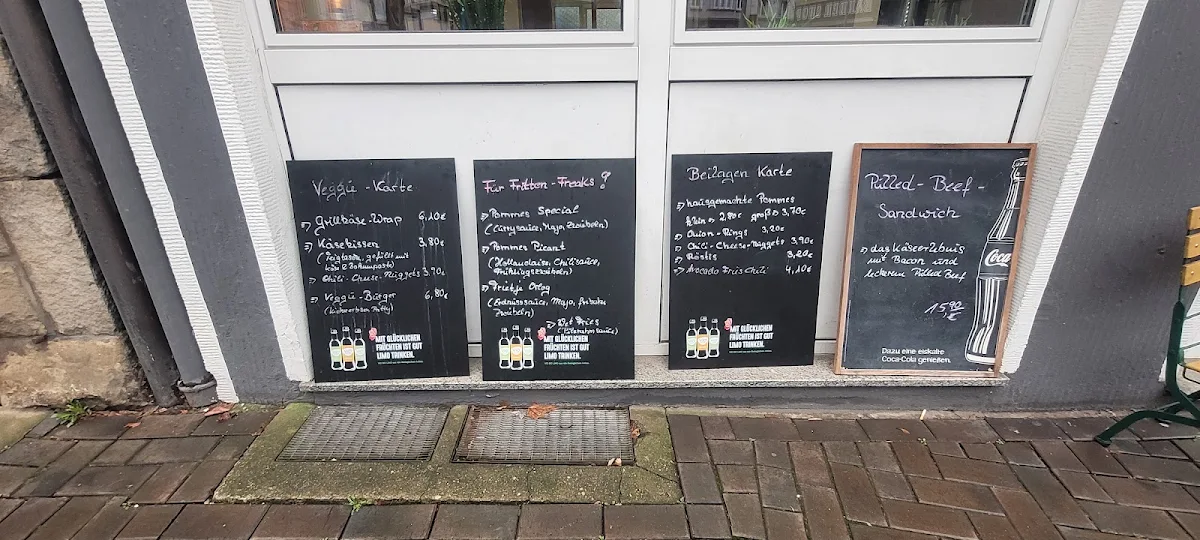 Veggü-Karte
Grillkäse-Wrap 6,10€
Käsekissen 3,80€
(Teigtasche, gefüllt mit
Chili-Cheese-Nuggets 3,70€
Veggü-Burger 6,80€
MIT GLÜCKLICHEN
FRÜCHTEN IST GUT
LIMO TRINKEN.
Für Fritten-Freaks
Pommes Spezial
(Currysauce, Mayo, Zwiebeln)
Pommes Picant
(Hollandaise, Chilisauce,
Frühlingszwiebeln)
Frietje Orlog
(Erdnusssauce, Mayo,
Zwiebeln)
MIT GLÜCKLICHEN
FRÜCHTEN IST GUT
LIMO TRINKEN.
Beilagen Karte
hausgemachte Pommes
klein 2,80€ groß 3,70€
Onion-Rings 3,20€
Chili-Cheese-Nuggets 3,90€
Röstis 3,20€
Avocado Frischili 4,10€
MIT GLÜCKLICHEN
FRÜCHTEN IST GUT
LIMO TRINKEN.
Pulled-Beef-
Sandwich
das Käseerlebnis
mit Bacon und
leckerem Pulled Beef
15,90
€
Coca
Dazu eine eiskalte
Coca-Cola genießen.